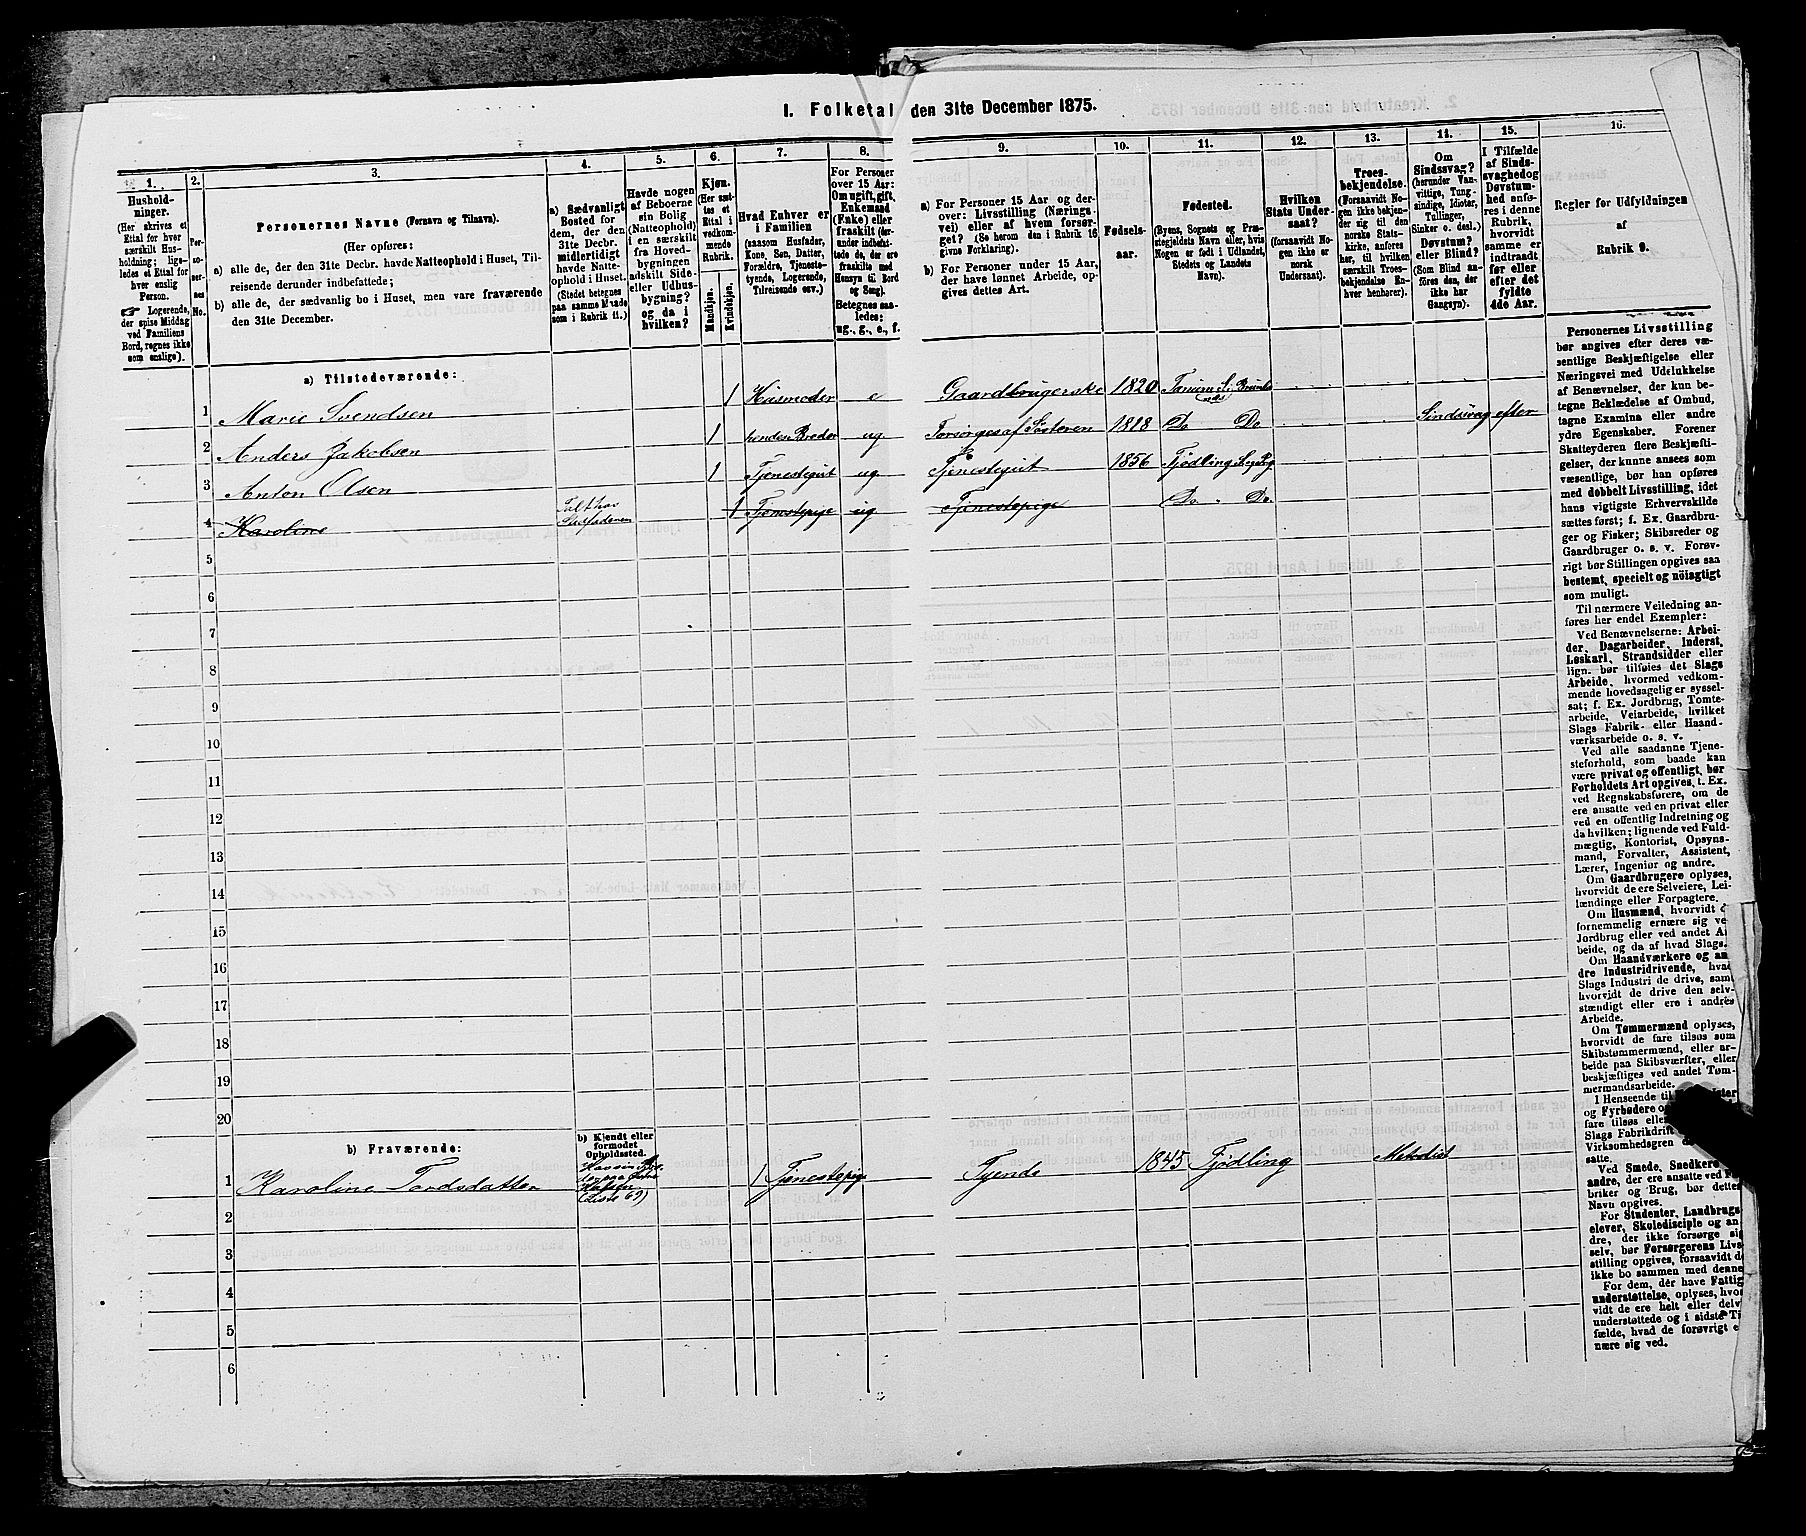 1. Folketal den 31te December 1875.
1.
Hushold-
ninger.
(Her skrives et
Ettal for hver
særskilt Hus-
holdning; lige-
ledes et Ettal for
hver enslig
Person.
Logerende,
der spise Middag
ved Familiens
Bord, regnes ikke
som enslige).
2.
Per-
so-
ner-
nes
No.
3.
Personernes Navne (Fornavn og Tilnavn).
(Her opføres:
a) alle de, der den 31te Decbr. havde Natteophold i Huset, Til-
reisende derunder indbefattede;
b) alle de, der sædvanlig bo i Huset, men vare fraværende
den 31te December.
4.
a) Sædvanligt
Bosted for
dem, der den
31te Decbr.
midlertidigt
havde Natte-
ophold i Huset.
(Stedet betegnes
paa samme Maade
som i Rubrik 11.)
5.
Havde nogen
af Beboerne
sin Bolig
(Natteophold)
i en særskilt
fra Hoved-
bygningen
adskilt Side-
eller Udhus-
bygning?
og da i
hvilken?
6.
Kjøn.
(Her sæt-
tes et
Ettal i
vedkom-
mende
Rubrik.
Mandkjøn.
Kvindekjøn.
7.
Hvad Enhver er
i Familien
(saasom Husfader,
Kone, Søn, Datter,
Forældre, Tjeneste-
tyende, Logerende,
Tilreisende osv.)
8.
For Personer
over 15 Aar:
Om ugift, gift,
Enkemand
(Enke) eller
fraskilt (der-
under indbefat-
tede de, der ere
fraskilte med
Hensyn til Bord
og Seng).
Betegnes saa-
ledes:
ug., g., e., f.
9.
a) For Personer 15 Aar og der-
over: Livsstilling (Nærings-
vei) eller af hvem forsør-
get? (Se herom den i Rubrik 16
givne Forklaring).
b) For Personer under 15 Aar,
der have lønnet Arbeide, op-
gives dettes Art.
10.
Fødsels-
aar.
11.
Fødested.
(Byens, Sognets og Præ-
stegjeldets Navn eller, hvis
Nogen er født i Udlandet,
Stedets og Landets
Navn).
12.
Hvilken
Stats Under-
saat?
(forsaavidt No-
gen ikke er
norsk
Undersaat).
13.
Troes-
bekjendelse.
(Forsaavidt No-
gen ikke bekjen-
der sig til den
norske Stats-
kirke, anføres
her, til hvilken
særskilt Troes-
bekjendelse En-
hver henhører).
14.
Om
Sindssvag?
(herunder Van-
vittige, Tung-
sindige, Idioter,
Tullinger,
Sinker o. desl.)
Døvstum?
eller Blind?
(Som Blind an-
føres den, der
ikke har
Gangsyn).
15.
I Tilfælde
af Sinds-
svaghed og
Døvstum-
hed anfø-
res i denne
Rubrik,
hvorvidt
samme er
indtraadt
før eller
efter det
fyldte
4de Aar.
16.
Regler for Udfyldningen
af
Rubrik 9.
a) Tilstedeværende:
1 Marie Svendsen 1 Husmoder e Gaardbrugerske 1820 Tanum S. Brunla
2 Anders Jakobsen 1 hendes Broder ug. Forsørges af Søsteren 1818 Do Do Sindssvag efter
3 Anton Olsen 1 Tjenestegut ug Tjenestegut 1856 Tjødling
4 Karoline 1 Tjenestepige ug Tjenestepige Do " Do
5
6
7
8
9
10
11
12
13
14
15
16
17
18
19
20
b) Fraværende:
b) Kjendt eller
formodet
Opholdssted.
1 Karoline Tordsdatter 1 Tjenestepige Tyende 1845 Tjødling Metodist
2
3
4
5
6
Personernes Livsstilling
bør angives efter deres væ-
sentlige Beskjæftigelse eller
Næringsvei med Udelukkelse
af Benævnelser, der kun be-
tegne Beklædelse af Ombud,
tagne Examina eller andre
ydre Egenskaber. Forener
Skatteyderen flere Beskjæfti-
gelser, der kunne ansees som
væsentlige, bør han opføres
med dobbelt Livsstilling, idet
hans vigtigste Erhvervskilde
sættes først; f. Ex. Gaardbru-
ger og Fisker; Skibsreder og
Gaardbruger o. s. v. Forøv-
rigt bør Stillingen opgives saa
bestemt, specielt og nöiagtigt
som muligt.
Til nærmere Veiledning an-
føres her endel Exempler:
Ved Benævnelserne: Arbei-
der, Dagarbeider, Inderst,
Løskarl, Strandsidder eller
lign. bør tilføies det Slags
Arbeide, hvormed vedkom-
mende hovedsagelig er syssel-
sat; f. Ex. Jordbrug, Tomte-
arbeide, Veiarbeide, hvilket
Slags Fabrik- eller Haand-
værksarbeide o. s. v.
Ved alle saadanne Tjene-
steforhold, som baade kan
være privat og offentligt, bør
Forholdets Art opgives, t. Ex.
ved Regnskabsførere, om de
ere ansatte ved en privat eller
ved en offentlig Indretning og
da hvilken; lignende ved Fuld-
mægtig, Kontorist, Opsyns-
mand, Forvalter, Assistent,
Lærer, Ingeniør og andre.
Om Gaardbrugere oplyses,
hvorvidt de ere Selveiere, Lei-
lændinge eller Forpagtere.
Om Husmænd, hvorvidt
fornemmelig ernære sig ve
Jordbrug eller ved andet A
beide, og da af hvad Slags.
Om Haandværkere og an
dre Industridrivende, hva
Slags Industri de drive, samt
hvorvidt de drive den selv-
stændigt eller ere i andres
Arbeide.
Om Tømmermænd oplyses,
hvorvidt de fare tilsøs som
Skibstømmermænd, eller ar-
beide paa Skibsværfter, eller
beskjæftiges ved andet Tøm-
mermandsarbeide.
I Henseende til
og Fyrbødere o
fare tilsøs eller
Slags Fabrikdrift
Virksomhedsgren
satte.
Ved Smede, Snedkere
andre, der ere ansatte ved
briker og Brug, bør dette
Navn opgives.
For Studenter, Landbrugs
elever, Skoledisciple og an
dre, der ikke forsørge sig
selv, bør Forsørgerens Livs
stilling opgives, forsaavidt de
ikke bo sammen med denne
For dem, der have Fattig
understøttelse, oplyses, hvor
vidt de ere helt eller delv
understøttede og i sidste Ti
fælde, hvad de forøvrigt e
nære sig ved.